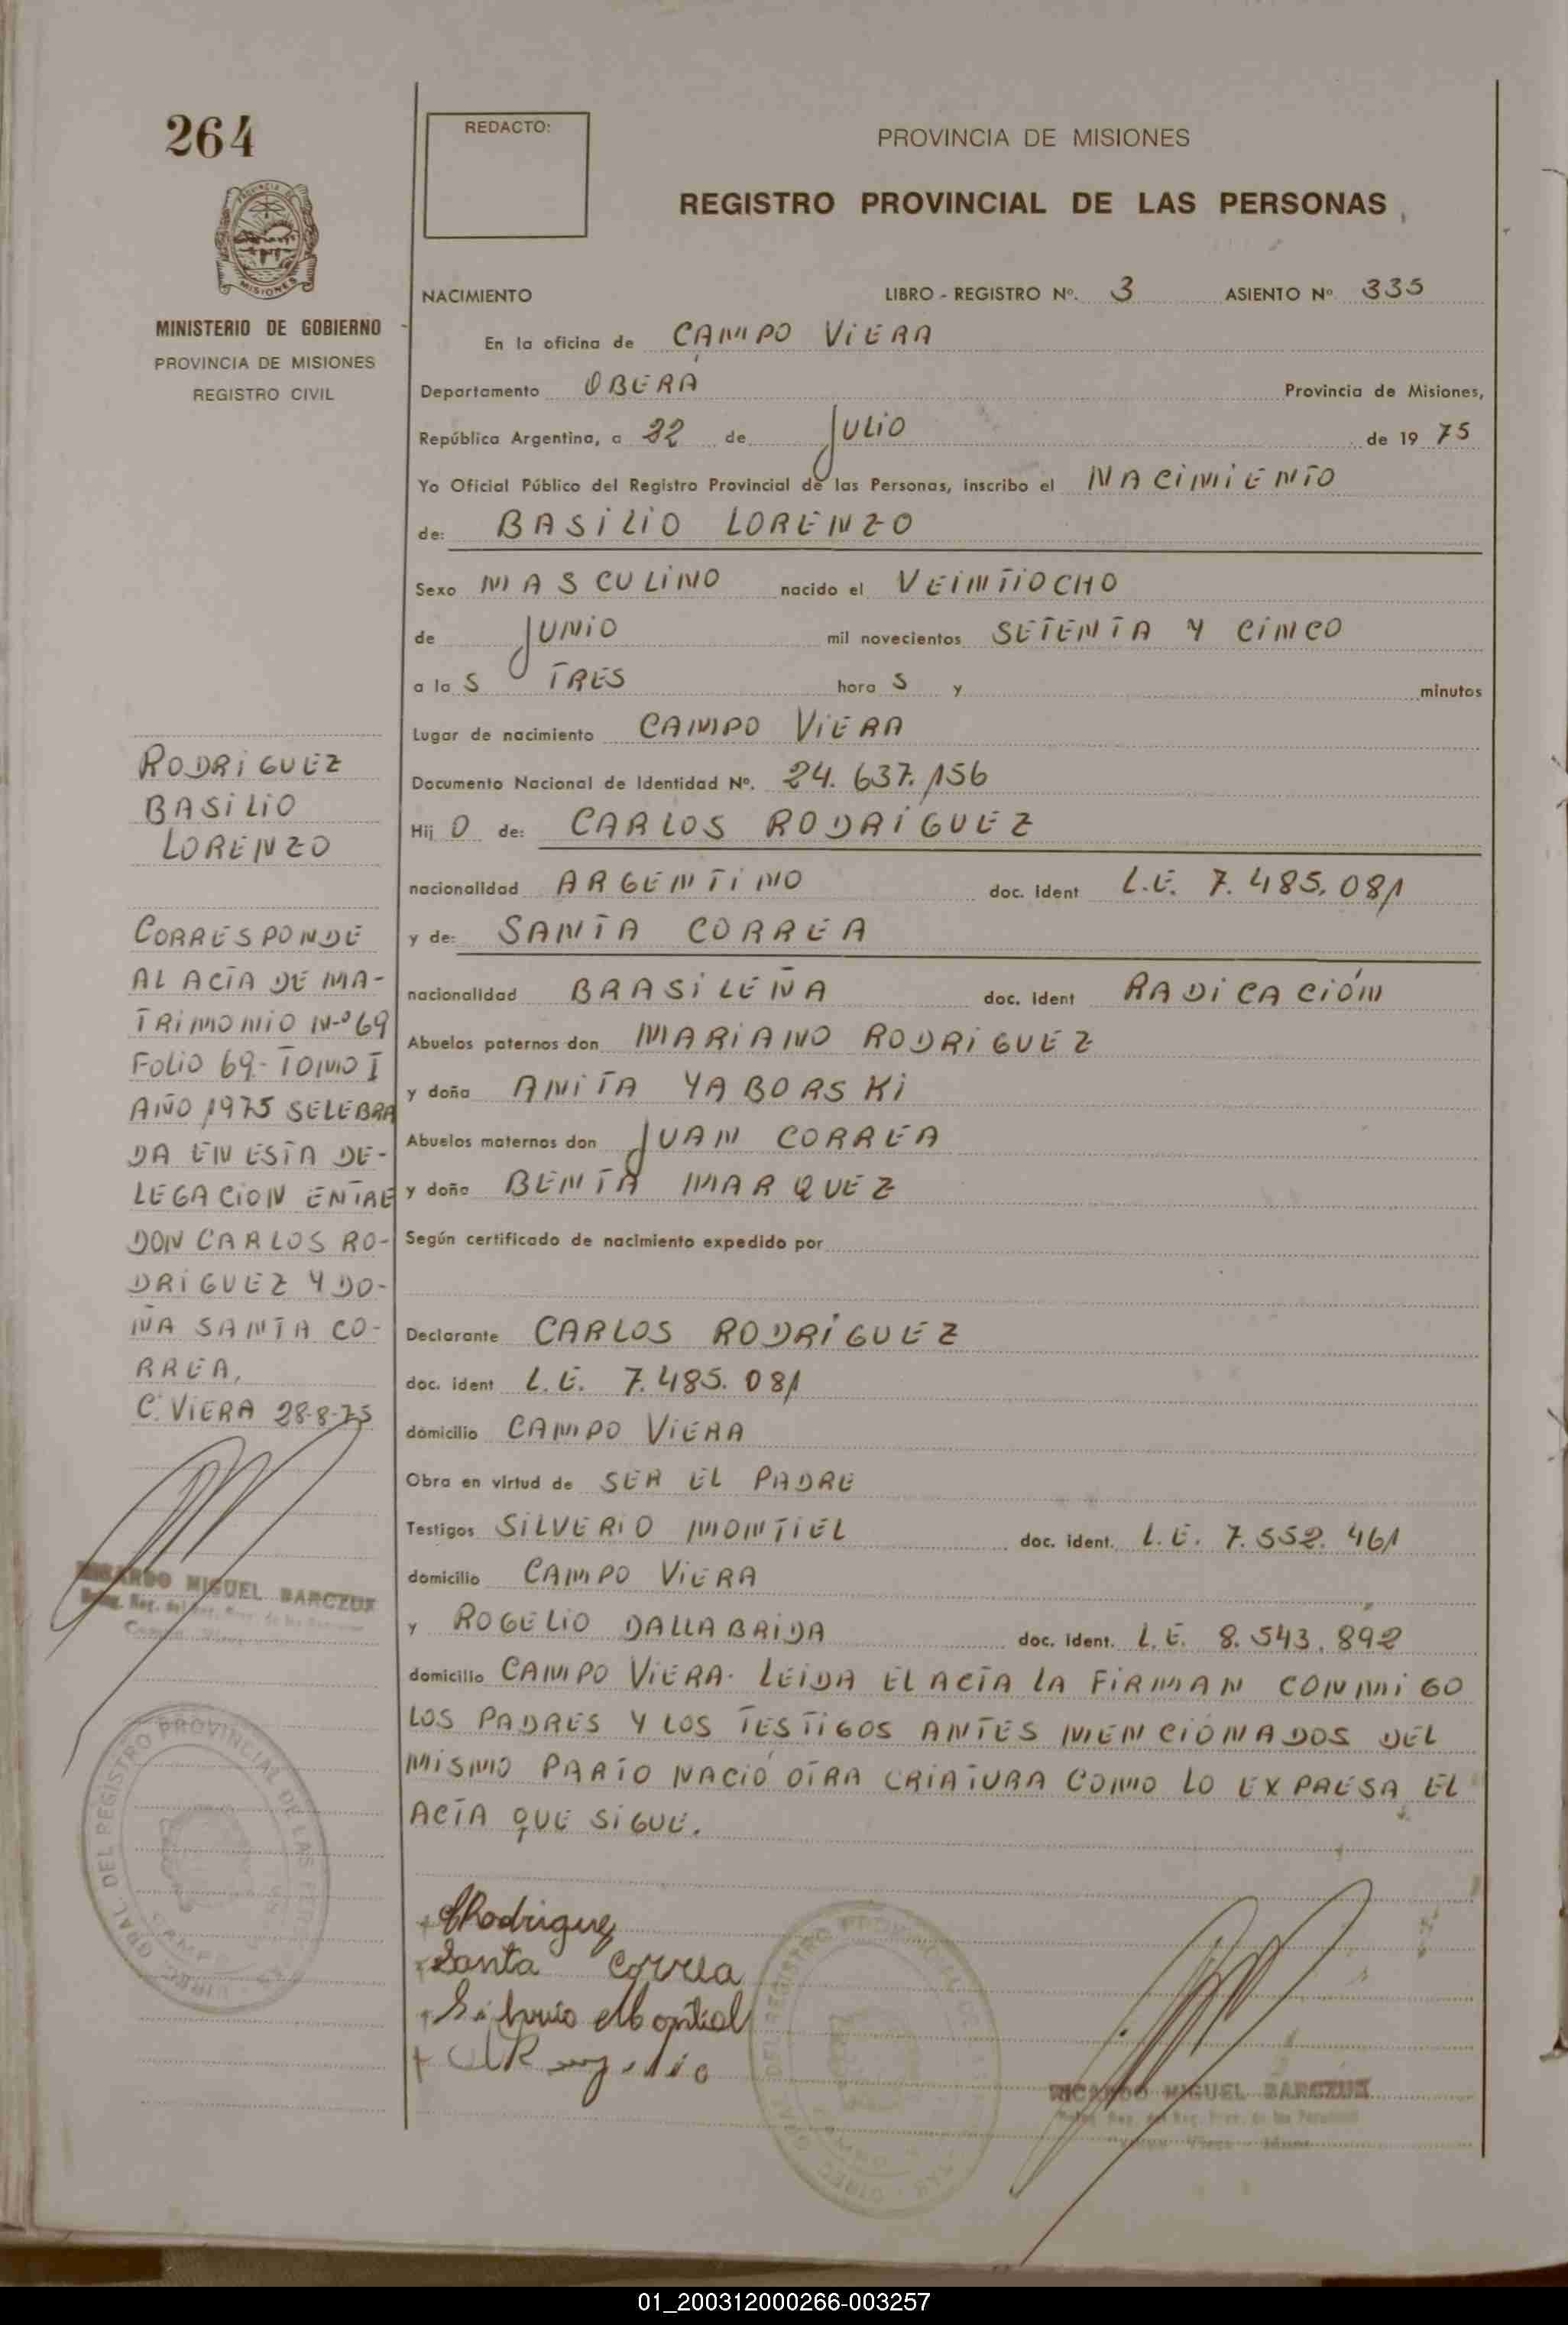 264
MINISTERIO DE GOBIERNO
PROVINCIA DE MISIONES
REGISTRO CIVIL
RODRIGUEZ
BASILIO
LORENZO
CORRESPONDE
AL ACTA DE MA-
TRIMONIO N-º 69
FOLIO 69-TOMO I
AÑO 1975 SELEBRA
DA EN ESTA DE-
LEGACION ENTRE
DON CARLOS RO-
DRIGUEZ Y DO-
ÑA SANTA CO-
RREA,
C. VIERA 28-8-75
RICARDO MIGUEL BARCZUK
REDACTO:
PROVINCIA DE MISIONES
REGISTRO PROVINCIAL DE LAS PERSONAS
NACIMIENTO LIBRO - REGISTRO Nº. 3 ASIENTO Nº 335
En la oficina de CAMPO VIERA
Departamento OBERÁ Provincia de Misiones,
República Argentina, a 22 de JULIO de 19 75
Yo Oficial Público del Registro Provincial de las Personas, inscribo el NACIMIENTO
de: BASILIO LORENZO
Sexo MASCULINO nacido el VEINTIOCHO
de JUNIO mil novecientos SETENTA Y CINCO
a la S TRES hora S y minutos
Lugar de nacimiento CAMPO VIERA
Documento Nacional de Identidad Nº. 24.637.156
Hij O de: CARLOS RODRIGUEZ
nacionalidad ARGENTINO doc. Ident L.E. 7.485.081
y de: SANTA CORREA
nacionalidad BRASILEÑA doc. Ident RADICACIÓN
Abuelos paternos don MARIANO RODRIGUEZ
y doña ANITA YABORSKI
Abuelos maternos don JUAN CORREA
y doña BENTA MARQUEZ
Según certificado de nacimiento expedido por
Declarante CARLOS RODRIGUEZ
doc. ident L.E. 7.485.081
domicilio CAMPO VIERA
Obra en virtud de SER EL PADRE
Testigos SILVERIO MONTIEL doc. ident. L.E. 7.552.461
domicilio CAMPO VIERA
y ROGELIO DALLABRIDA doc. ident. L.E. 8.543.892
domicilio CAMPO VIERA. LEIDA EL ACTA LA FIRMAN CONMIGO
LOS PADRES Y LOS TESTIGOS ANTES MENCIONADOS DEL
MISMO PARTO NACIÓ OTRA CRIATURA COMO LO EXPRESA EL
ACTA QUE SIGUE.
CRodriguez
Santa Correa
Silverio Montiel
RICARDO MIGUEL BARCZUK
01_200312000266-003257